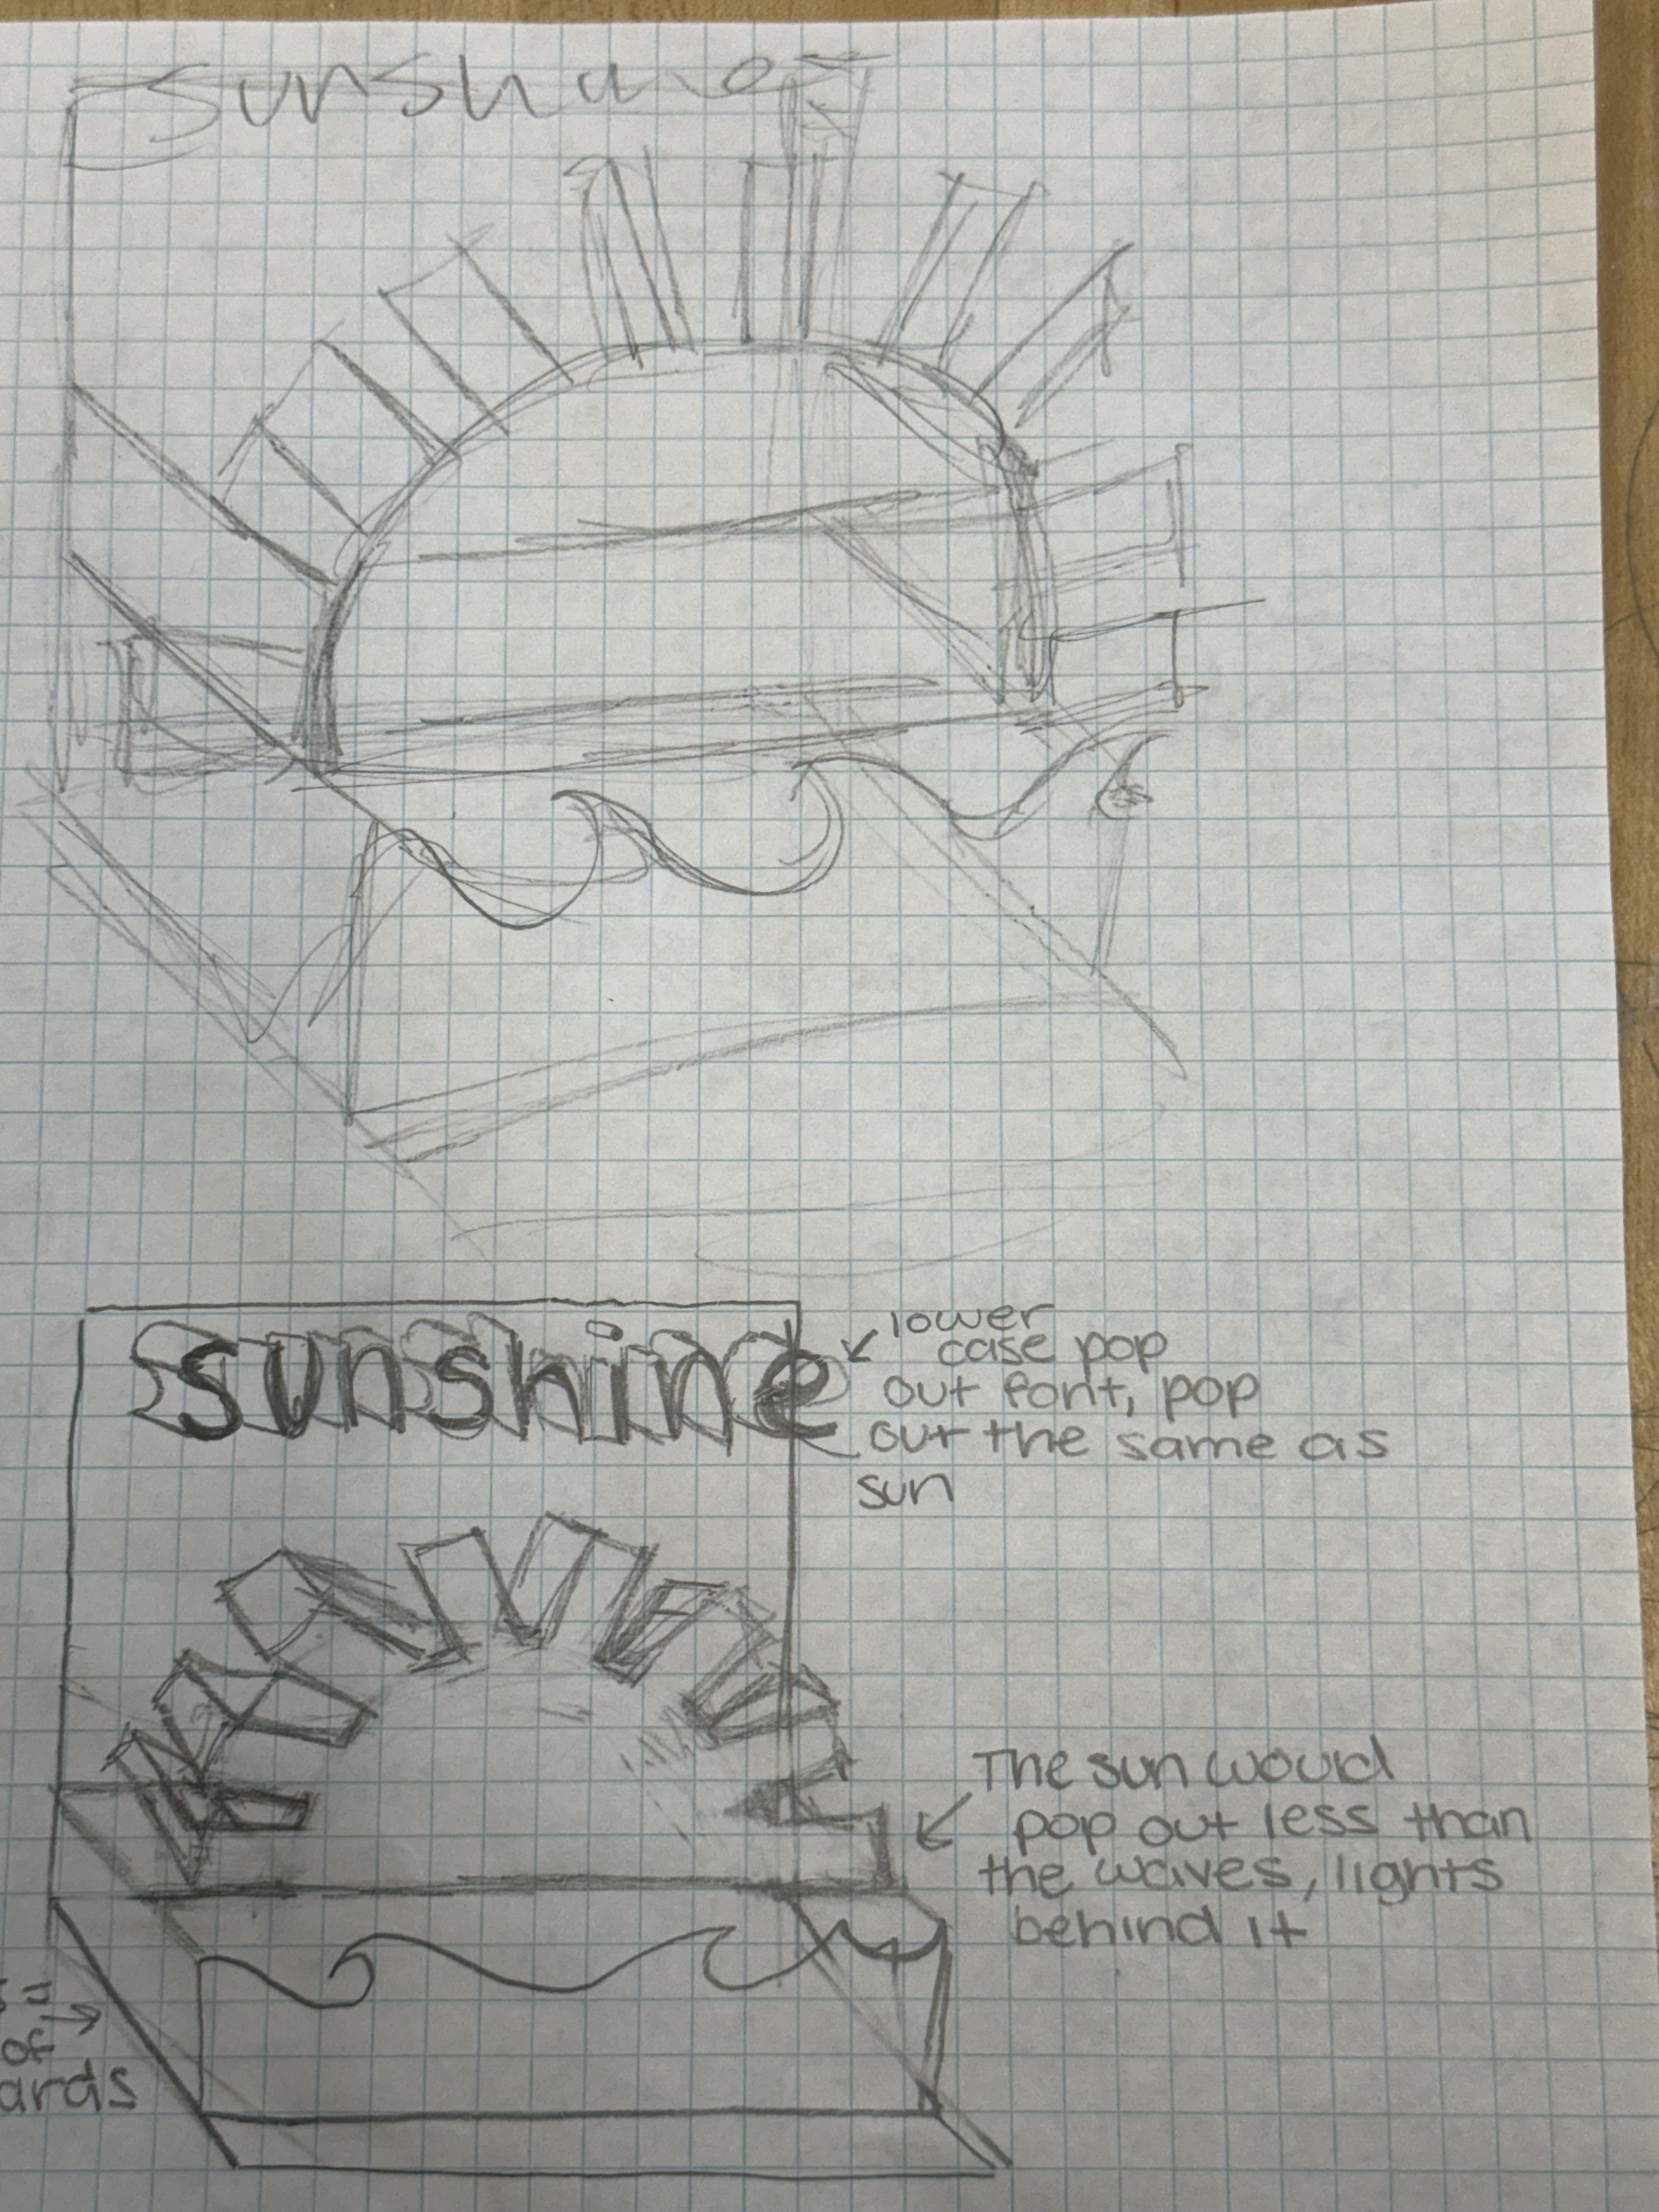 sunshine
sunshine
lower
case pop
out font, pop
out the same as
sun
The sun would
pop out less than
the waves, lights
behind it
of